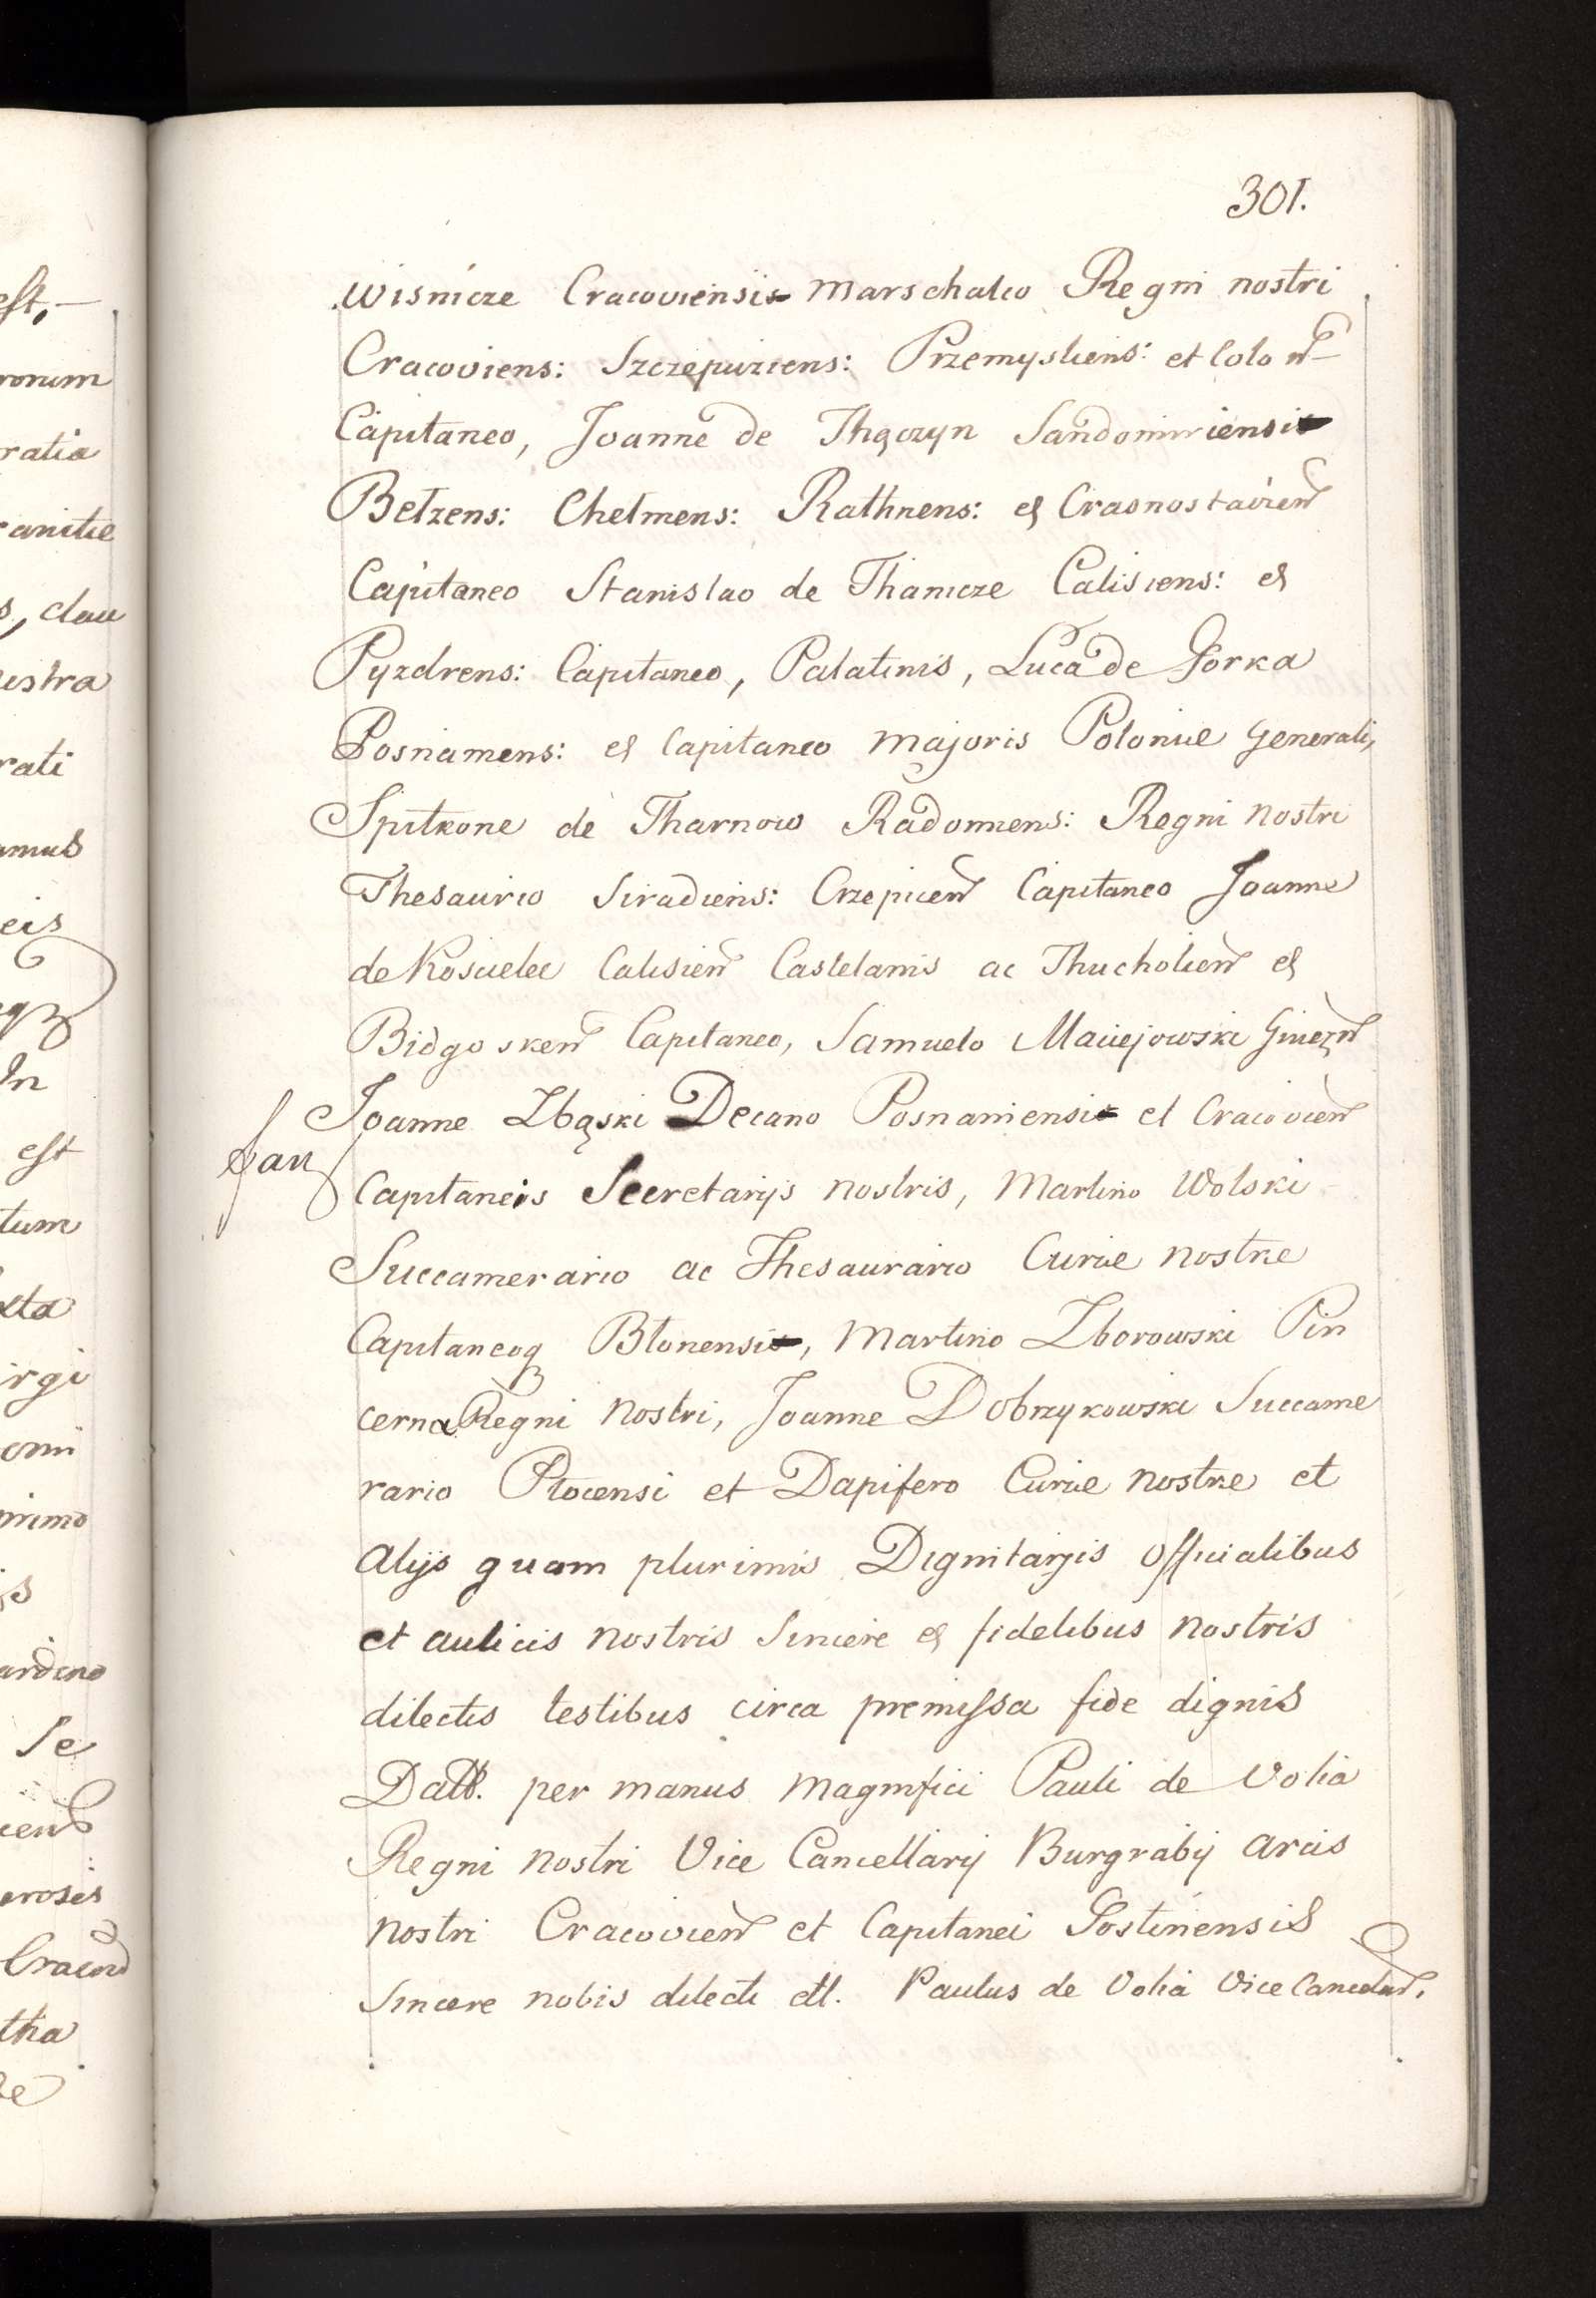 301.
Wisnicze Cracoviensi Marschalco Regni nostri
Cracoviens: Szczepuziens: Przemysliens: et Colon
Capitaneo, Joanne de Thęczyn Sandomiriensi
Betzens: Chelmens: Rathnens: et Crasnostavien
Capitaneo Stanislao de Thanicze Calisiens: et
Pyzdrens: Capitaneo, Palatinis, Luca de Gorka
Posnamens: et Capitaneo Majoris Poloniae Generali,
Spitkone de Tharnow Radomiens: Regni nostri
Thesaurio Siradiens: Crzepicen Capitaneo Joanne
de Koscielec Calisien Castelanis ac Thucholien et
Bidgosken Capitaneo, Samuelo Maciejowski
Joanne Zbąski Decano Posnaniensi et Cracovien
Capitaneis Secretarijs nostris, Martino Wolski
Succamerario ac Thesaurario Curiae nostrae
Capitaneoq Blonensi, Martino Zborowski Pin
cerna Regni nostri, Joanne Dobrzykowski Succame
rario Plocensi et Dapifero Curiae nostrae et
alijs quam plurimis Dignitarijs officialibus
et aulicis nostris Sincere et fidelibus nostris
dilectis testibus circa premissa fide dignis
Datt. per manus Magnifici Pauli de Volia
Regni nostri Vice Cancellarij Burgrabij arcis
nostri Cracovien et Capitanei Gostinensis
Sincere nobis dilecti ett. Paulus de Volia Vice
est,
ratia
anitie
s, clau
istra
rati
amus
eis
In
est
tum
xta
irgi
omi
primo
Se
erosis
tha